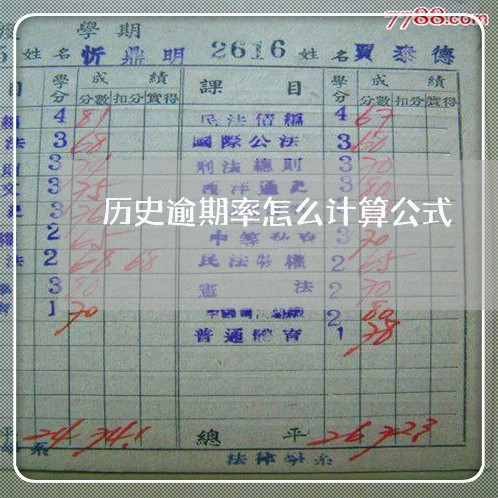 7788.com
學期
姓名 忻鼎明 2616 姓名 賈泰德
目 學分 成績 分數 扣分 實得 課目 學分 成績 分數 扣分 實得
4 81 民法債編 4 67
法 3 68 國際公法 3 60
3 刑法總則 3 70
3 75 西洋通史 3 80
历史逾期率怎么计算公式
2 65 3 70
法 2 68 68 民法物權 2 65
3 80 憲法 2 70
1 70 2 80
普通體育 1 78
平 24 74.1 總平 26 72.3
系 法律學系